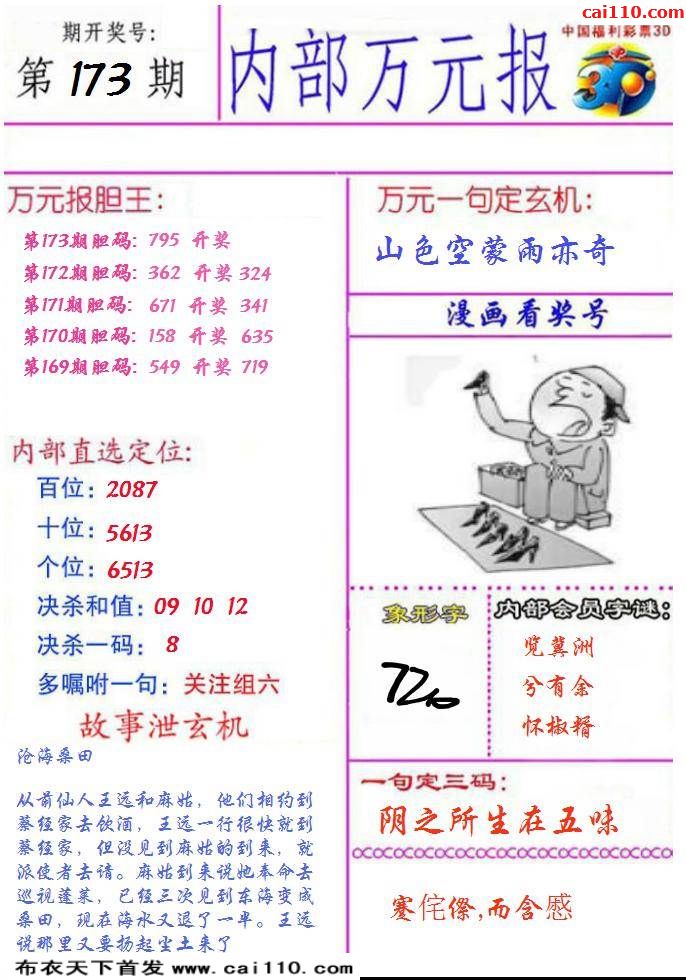 cai110.com
期开奖号:
第 173 期
内部万元报
中国福利彩票3D
3D
万元报胆王:
第173期胆码: 795 开奖
第172期胆码: 362 开奖 324
第171期胆码: 671 开奖 341
第170期胆码: 158 开奖 635
第169期胆码: 549 开奖 719
万元一句定玄机:
山色空蒙雨亦奇
漫画看奖号
内部直选定位:
百位: 2087
十位: 5613
个位: 6513
决杀和值: 09 10 12
决杀一码: 8
多嘱咐一句: 关注组六
故事泄玄机
沧海桑田
从前仙人王远和麻姑，他们相约到
蔡经家去饮酒，王远一行很快就到
蔡经家，但没见到麻姑的到来，就
派使者去请。麻姑到来说她本命去
巡视蓬莱，已经三次见到东海变成
桑田，现在海水又退了一半。王远
说那里又要扬起尘土来了
象形字
内部会员字谜:
览冀洲
兮有余
怀椒糈
一句定三码:
阴之所生在五味
蹇侘傺,而含慼
布衣天下首发 www.cai110.com